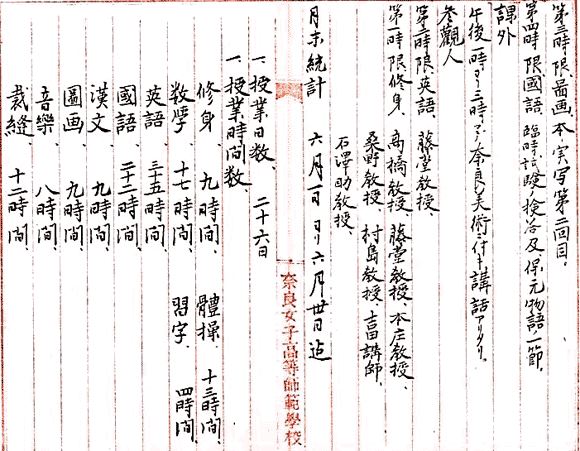 第三時限、圖画、本、実写第二回目。
第四時限國語、臨時試験ノ検答及、保元物語ノ一節、
課外
午後一時ヨリ三時マデ奈良美術ニ付キ講話アリタリ。
參觀人
第三時限英語、藤堂教授、
第一時限修身、高橋教授、藤堂教授、本庄教授、
桑野教授、村島教授、吉田講師、
石澤助教授、
月末統計 六月一日ヨリ六月卅日迄
一、授業日数、二十六日
一、授業時间数、
修身、九時间、體操、十三時间、
数學、十七時间、習字、四時间、
英語、三十五時间、
國語、二十二時间、
漢文、九時间、
圖画、九時间、
音樂、八時间、
裁縫、十二時间、
奈良女子高等師範學校